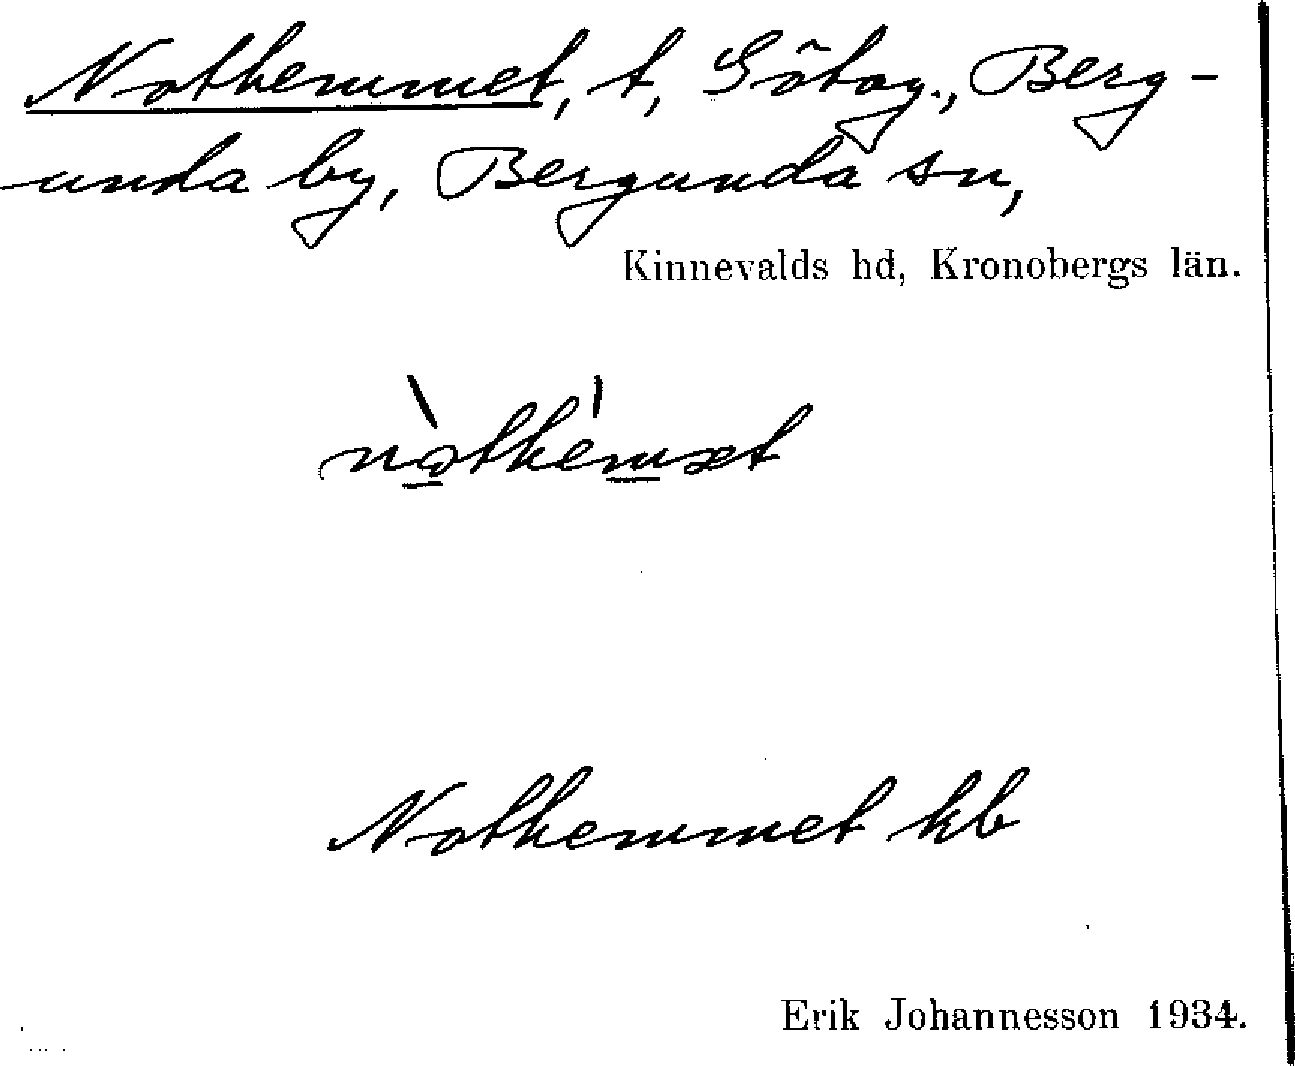 Nothemmet, t, Götag., Berg-
unda by, Bergunda sn,
Kinnevalds hd, Kronobergs län.
nòthémæt
Nothemmet kb
Erik Johannesson 1934.